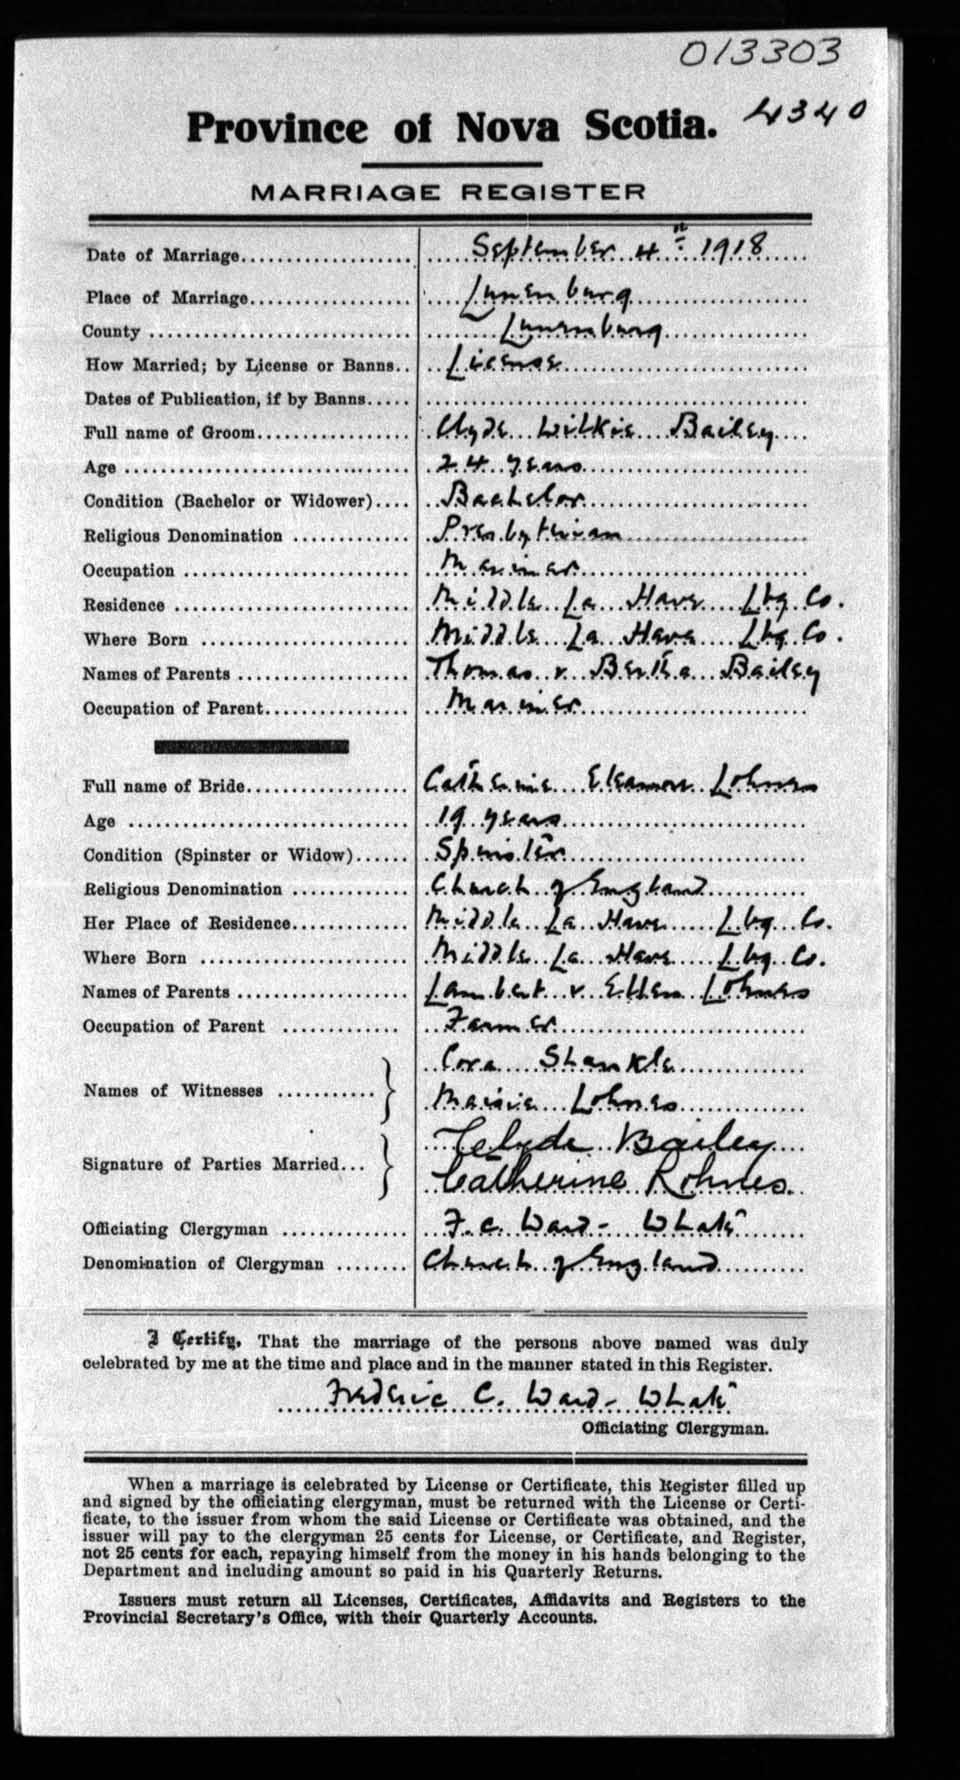 013303
4340
Province of Nova Scotia.
MARRIAGE REGISTER
Date of Marriage.................. September 4th 1918
Place of Marriage................. Lunenburg
County ........................... Lunenburg
How Married; by License or Banns.. License
Dates of Publication, if by Banns.....
Full name of Groom................ Clyde Wilkie Bailey
Age .............................. 24 years
Condition (Bachelor or Widower).... Bachelor
Religious Denomination ............ Presbyterian
Occupation ....................... Mariner
Residence ........................ Middle La Have Lbg Co.
Where Born ....................... Middle La Have Lbg Co.
Names of Parents .................. Thomas & Bertha Bailey
Occupation of Parent............... Mariner
Full name of Bride................. Catherine Eleanore Lohnes
Age .............................. 19 years
Condition (Spinster or Widow)...... Spinster
Religious Denomination ............ Church of England
Her Place of Residence............. Middle La Have Lbg Co.
Where Born ....................... Middle La Have Lbg Co.
Names of Parents .................. Lambert & Ellen Lohnes
Occupation of Parent ............. Farmer
Cora Shankle
Names of Witnesses ...........
Maisie Lohnes
Clyde Bailey
Signature of Parties Married...
Catherine Lohnes.
Officiating Clergyman .............. F. C. Ward-Whate
Denomination of Clergyman ........ Church of England
I Certify, That the marriage of the persons above named was duly
celebrated by me at the time and place and in the manner stated in this Register.
Frederic C. Ward-Whate
Officiating Clergyman.
When a marriage is celebrated by License or Certificate, this Register filled up
and signed by the officiating clergyman, must be returned with the License or Certi-
ficate, to the issuer from whom the said License or Certificate was obtained, and the
issuer will pay to the clergyman 25 cents for License, or Certificate, and Register,
not 25 cents for each, repaying himself from the money in his hands belonging to the
Department and including amount so paid in his Quarterly Returns.
Issuers must return all Licenses, Certificates, Affidavits and Registers to the
Provincial Secretary's Office, with their Quarterly Accounts.